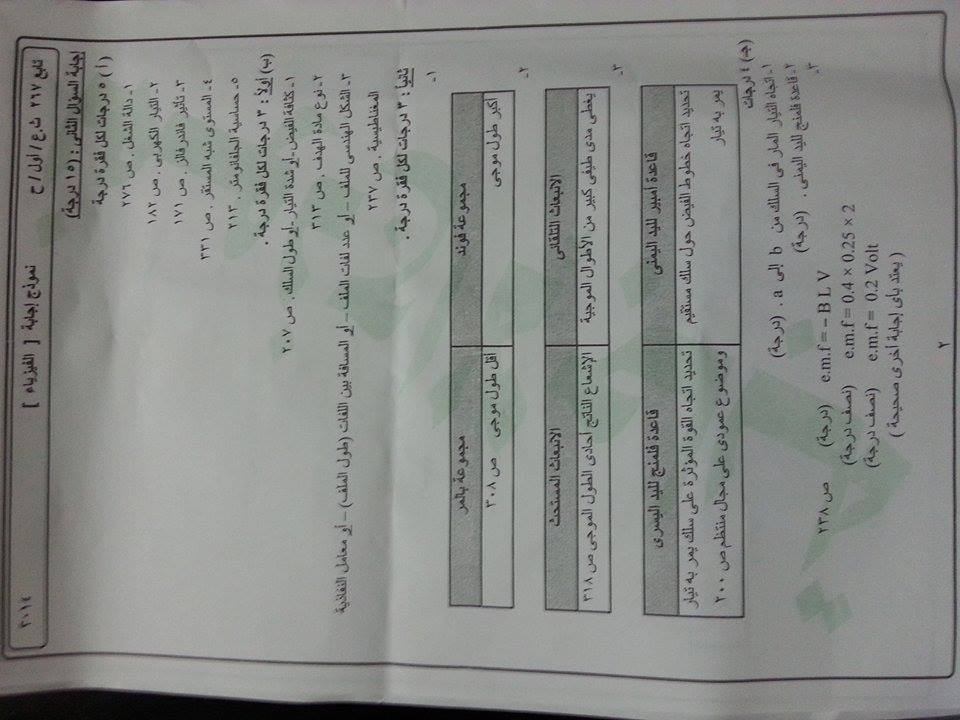 تابع ٢١٧ ث.ع / أول / ح نموذج إجابة [ الفيزياء ] ٢٠١٤
إجابة السؤال الثانى : (١٥ درجة)
( أ ) ٥ درجات لكل فقرة درجة
١- دالة الشغل . ص ٢٧٦
٢- التيار الكهربى . ص ١٨٢
٣- تأثير فاندرفالز . ص ١٧١
٤- المستوى شبه المستقر . ص ٣٢١
٥- حساسية الجلفانومتر . ٢١٣
(ب) أولاً : ٣ درجات لكل فقرة درجة .
١- كثافة الفيض - أو شدة التيار - أو طول السلك . ص ٢٠٧
٢- نوع مادة الهدف . ص ٣١٣
٣- الشكل الهندسى للملف – أو عدد لفات الملف – أو المسافة بين اللفات (طول الملف) – أو معامل النفاذية
المغناطيسية . ص ٢٣٧
ثانياً : ٣ درجات لكل فقرة درجة .
١-
مجموعة فوند مجموعة بالمر
أكبر طول موجى أقل طول موجى ص ٣٠٨
٢-
الانبعاث التلقائى الانبعاث المستحث
يغطى مدى طيفى كبير من الأطوال الموجية الإشعاع الناتج أحادى الطول الموجى ص ٣١٨
٣-
قاعدة أمبير لليد اليمنى قاعدة فلمنج لليد اليسرى
تحديد اتجاه خطوط الفيض حول سلك مستقيم تحديد اتجاه القوة المؤثرة على سلك يمر به تيار
يمر به تيار وموضوع عمودى على مجال منتظم ص ٢٠٠
(جـ) ٤ درجات
١- اتجاه التيار المار فى السلك من b إلى a . (درجة)
٢- قاعدة فلمنج لليد اليمنى . (درجة)
٣-
e.m.f = − B L V (درجة) ص ٢٣٨
e.m.f = 0.4 × 0.25 × 2 (نصف درجة)
e.m.f = 0.2 Volt (نصف درجة)
( يعتد بأى إجابة أخرى صحيحة )
٢